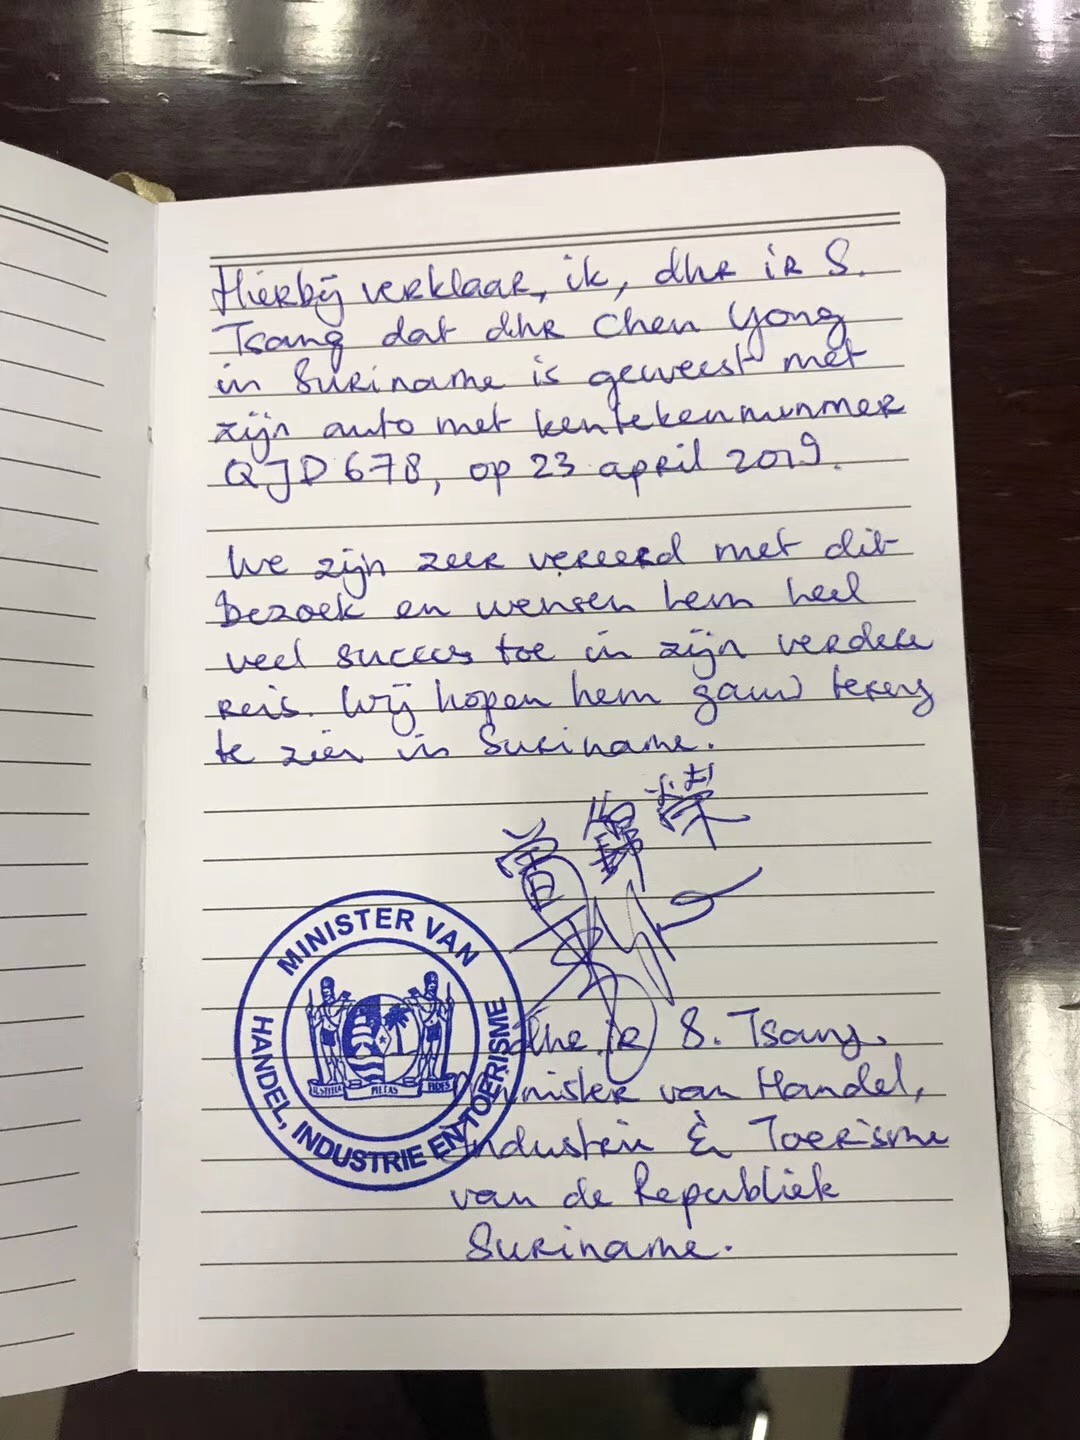 Hierbij verklaar, ik, dhr ir S.
Tsang dat dhr Chen Yong
in Suriname is geweest met
zijn auto met kentekennummer
QJD 678, op 23 april 2019.
We zijn zeer vereerd met dit
bezoek en wensen hem heel
veel succes toe in zijn verdere
reis. Wij hopen hem gauw terug
te zien in Suriname.
曾錦榮
MINISTER VAN
HANDEL, INDUSTRIE EN TOERISME
JUSTITIA PIETAS FIDES
dhr. ir S. Tsang,
Minister van Handel,
Industrie & Toerisme
van de Republiek
Suriname.